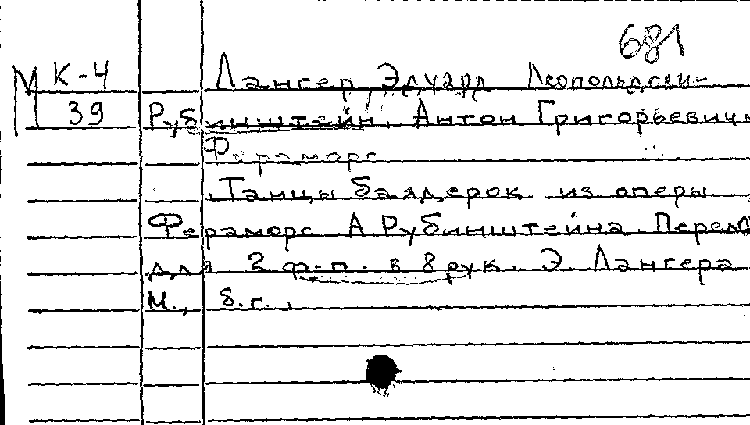 681
М К-4 Лангер, Эдуард Леопольдови-
39 Рубинштейн, Антон Григорьевич
Фераморс
Танцы баядерок из оперы
Фераморс А. Рубинштейна. Перел
для 2 ф-п. в 8 рук. Э. Лангера
М., б.г.,